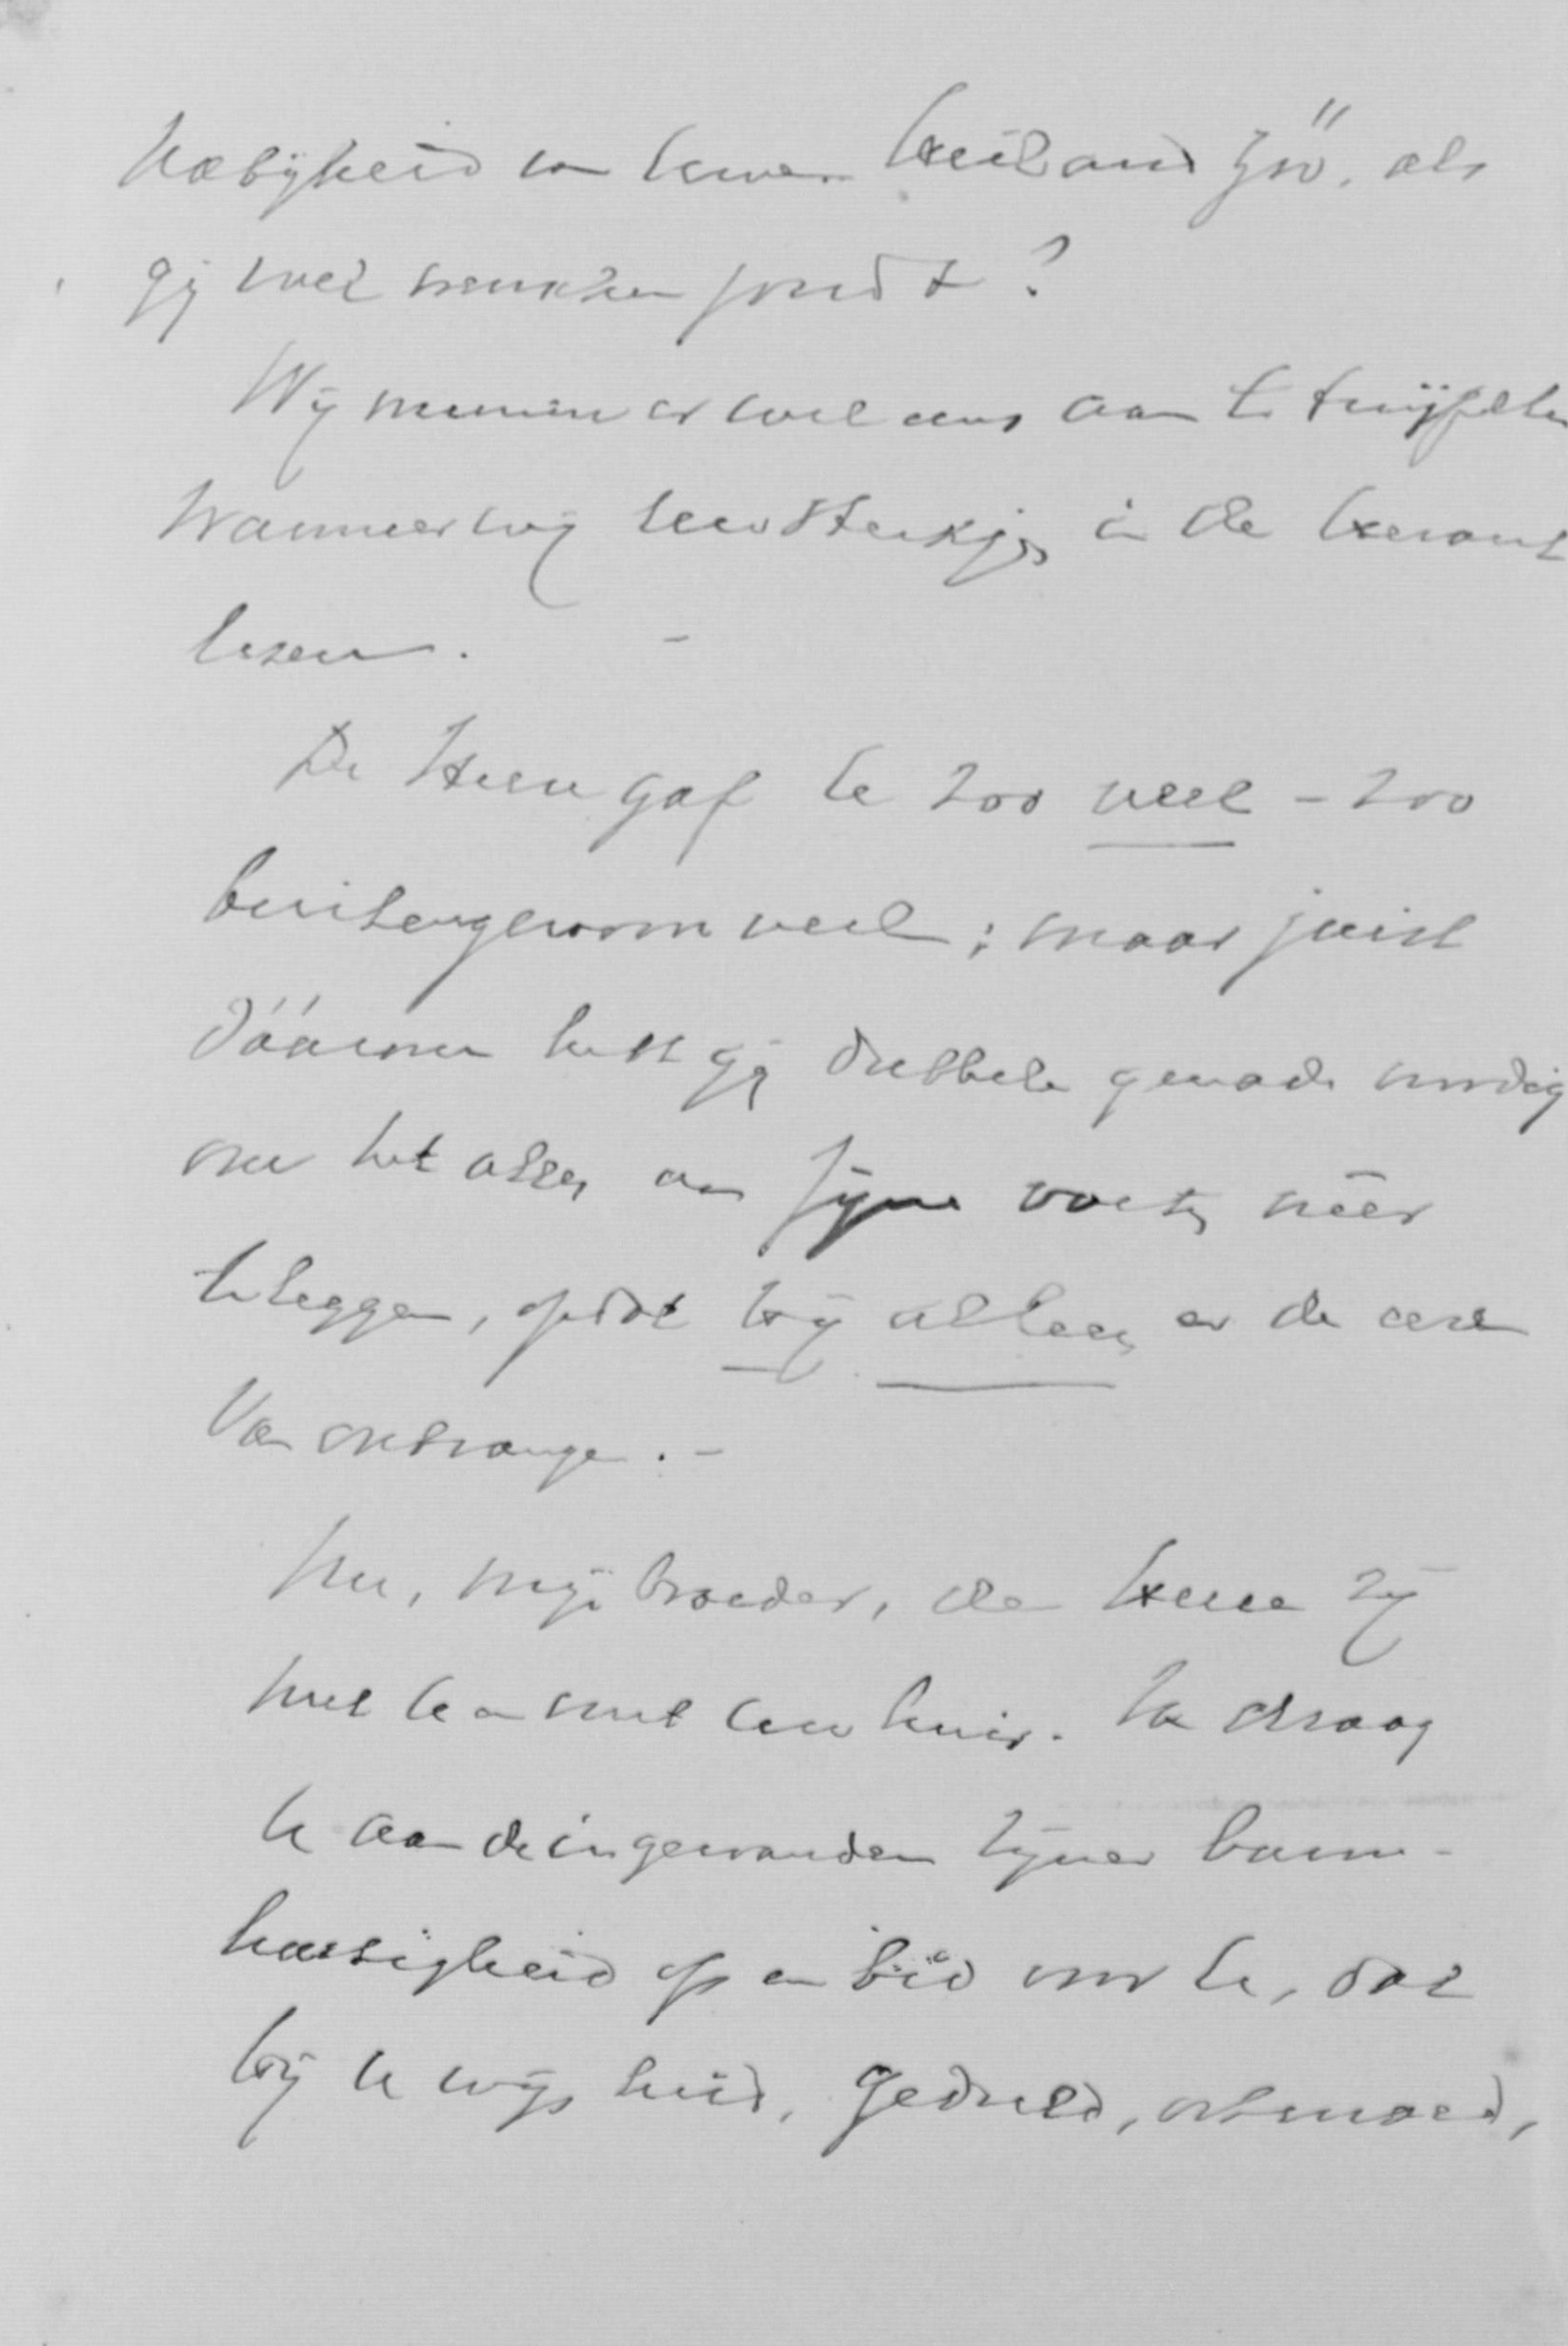 nabijheid van Uwen Heiland zijn", als
gij wel wenschen zoudt?
Wij meenen er wel eens aan te twijfelen
wanneer wij Uw stukjes in de Heraut
lezen. -
De Heere gaf U zoo veel - zoo
buitengewoon veel; maar juist
dáárom hebt gij dubbele genade noodig
om het alles aan Zijne voeten nêer
te leggen, opdat Hij alleen er de eere
van ontvange. -
Nu, mijn broeder, de Heere zij
met U en met Uw huis. Ik draag
U aan de ingewanden Zijner barm-
hartigheid op en bid voor U, dat
Hij U wijsheid, geduld, ootmoed,